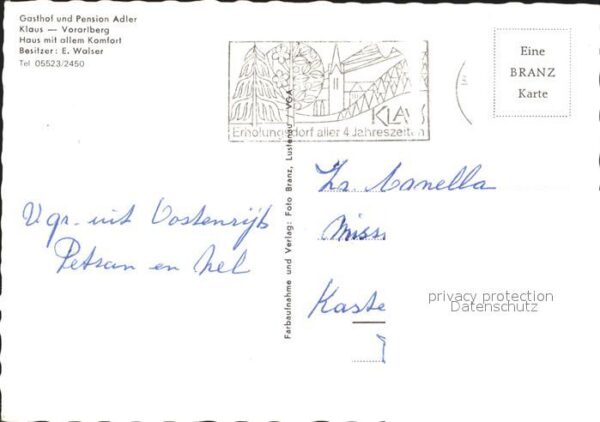 Gasthof und Pension Adler
Klaus — Vorarlberg
Haus mit allem Komfort
Besitzer: E. Walser
Tel 05523/2450
KLAUS
Erholungsdorf aller 4 Jahreszeiten
Eine
BRANZ
Karte
Farbaufnahme und Verlag: Foto Branz, Lustenau / VGA
Vgr. uit Oostenrijk
Petran en Nel
Zr. Canella
Miss
Kaste
privacy protection
Datenschutz